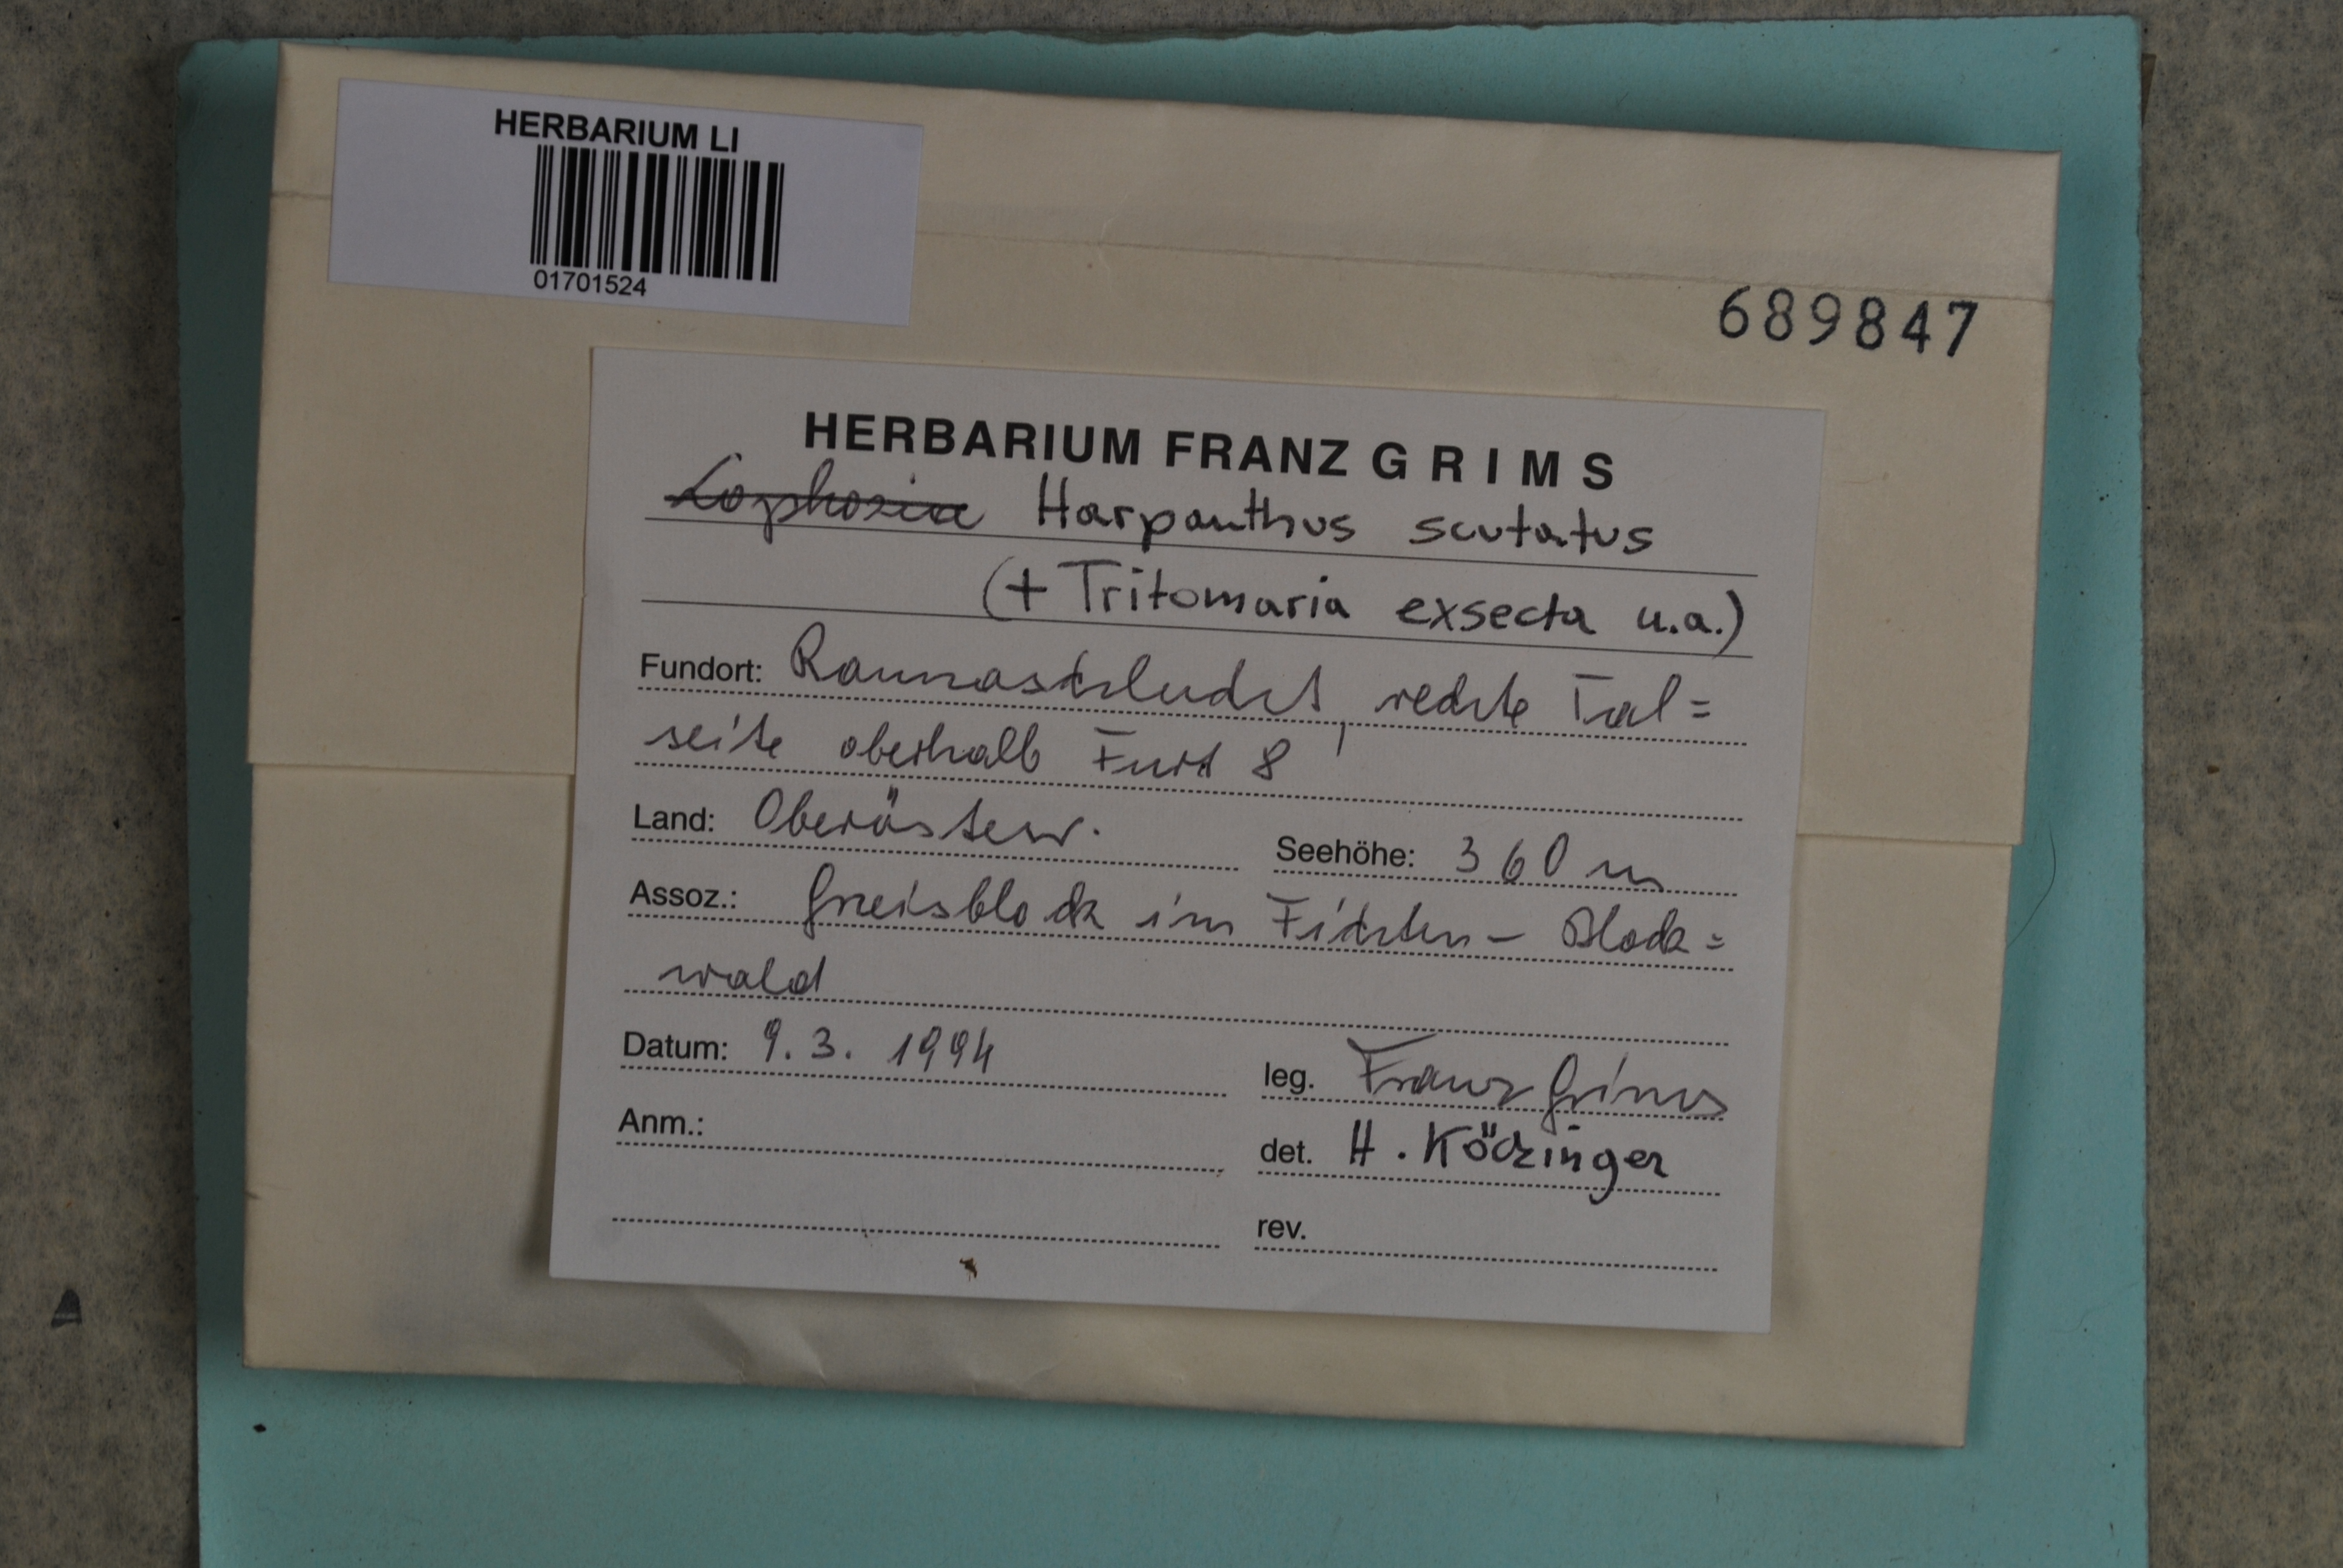 HERBARIUM LI
01701524
689847
HERBARIUM FRANZ GRIMS
Lophozia Harpanthus scutatus
(+ Tritomaria exsecta u.a.)
Fundort: Rannaschlucht, rechte Tal=
seite oberhalb Furt 8
Land: Oberösterr.
Seehöhe: 360 m
Assoz.: Gneisblock im Fichten - Block=
wald
Datum: 9.3.1994
leg. Franz Grims
Anm.:
det. H. Köckinger
rev.